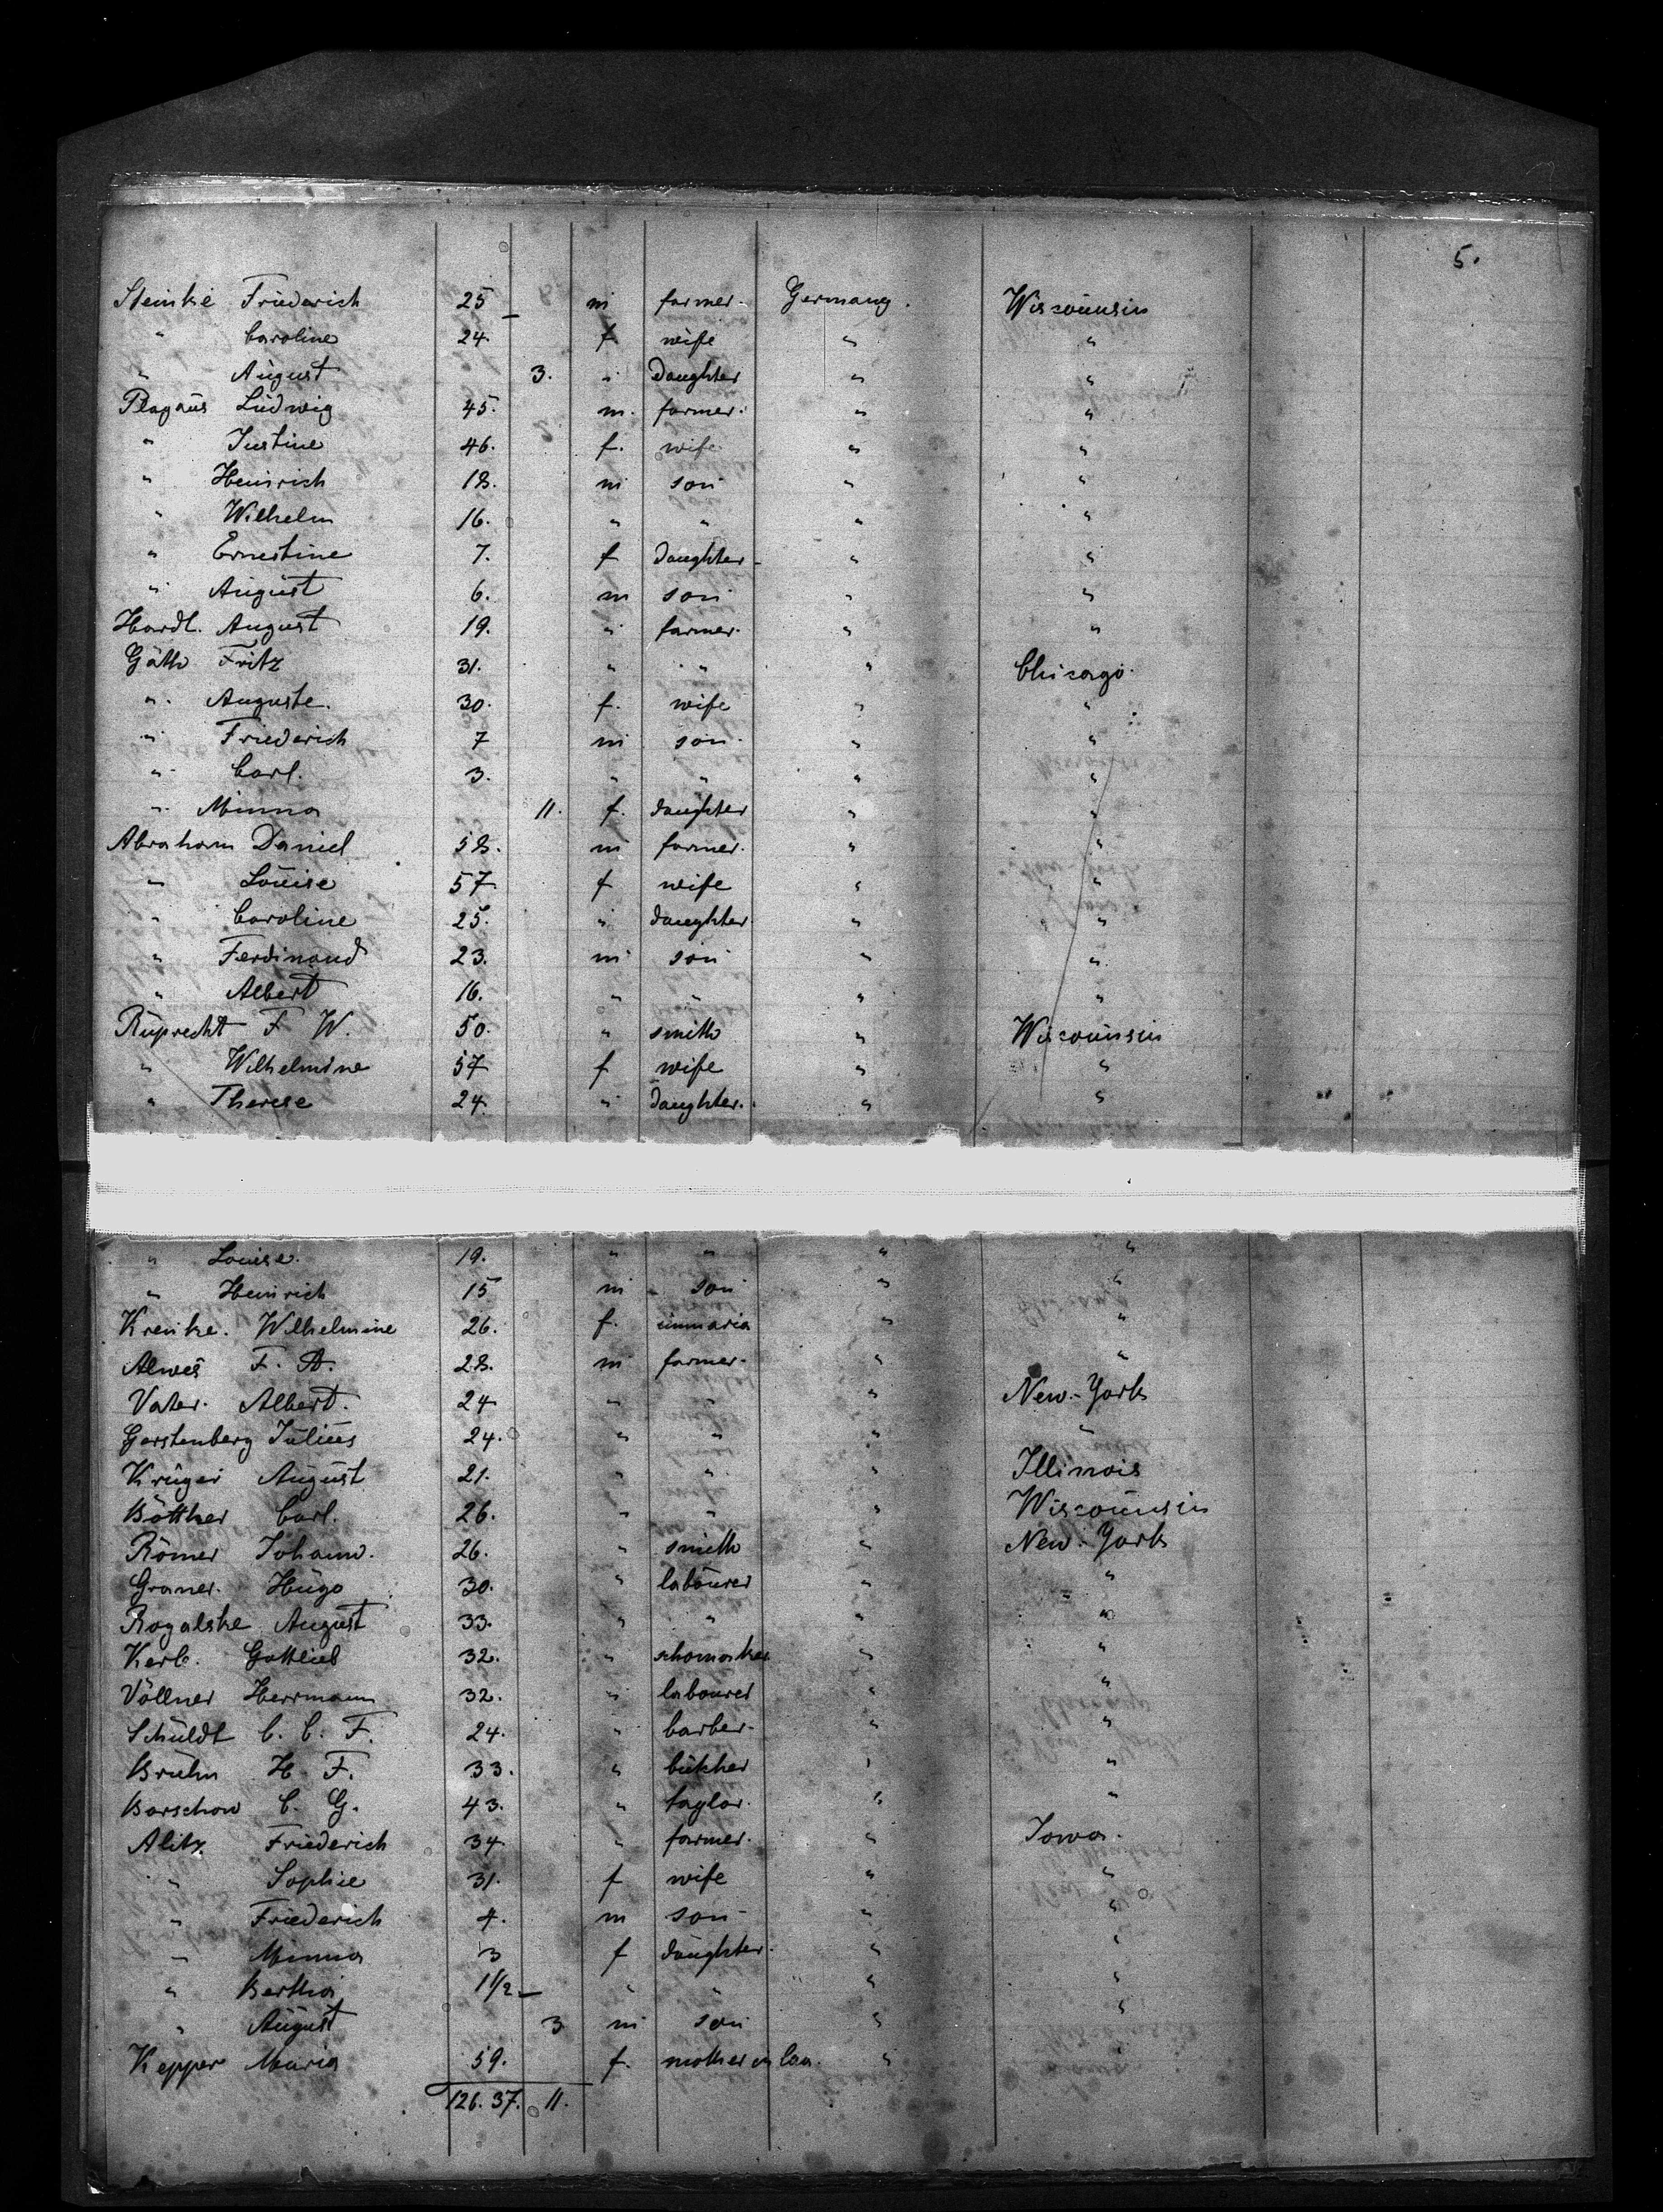 5.
Steinke Friederich 25 m farmer. Germany. Wisconnsin
" Caroline 24 f wife " "
" August 3. " Daughter " "
Ludwig 45. m. farmer. " "
" Justine 46. f. wife " "
" Heinrich 18. m son " "
" Wilhelm 16. " " " "
" Ernestine 7. f daughter " "
" August 6. m son " "
Hardt. August 19. " farmer. " "
Fritz 31. " " " Chicago.
" Auguste. 30. f. wife " "
" Friederich 7 m son " "
" Carl. 3. " " " "
" Minna 11. f. daughter " "
Abraham Daniel 58. m farmer. " "
" Louise 57 f wife " "
" Caroline 25. " daughter " "
" Ferdinand 23. m son " "
" Albert 16. " " " "
Ruprecht F W. 50. " smith " Wisconnsin
" Wilhelmine 57 f wife " "
" Therese 24 " Daughter. " "
" Louise. 19. " " " "
" Heinrich 15 m son " "
Krenke. Wilhelmine 26. f. " "
Alwes F. A. 28. m farmer. " "
Vater. Albert. 24 " " " New-York
Gerstenberg Julius 24. " " " "
Krüger August 21. " " " Illinois
Bötther Carl. 26. " " " Wisconnsin
Römer Johann. 26. " smith " New-York
Graner. Hugo 30. " labourer " "
Rogalske August 33. " " " "
Kerb. Gottlieb 32. " schomaker " "
Völlner Herrmann 32. " labourer " "
Schuldt C. C. F. 24. " barber " "
Bruhn H. F. 33. " butcher " "
Borschow C. G. 43. " taylor. " "
Alitz Friederich 34 " farmer. " Iowa.
" Sophie 31. f wife " "
" Friederich 4. m son " "
" Minna 3 f daughter. " "
" Bertha 1 1/2 " " " "
" August 3 m son " "
Kepper Maria 59. f. mother in law. " "
126. 37. 11.